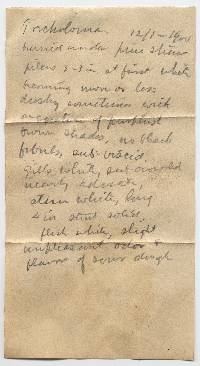 Tricholoma. 12/1-1900
buried under pine straw
pileus 3-5 in at first white
becoming more or less
dusky sometimes with
of purplish
brown shades, no black
fibrils, sub viscid.
Gills white, sub crowded
nearly adnexed,
stem white, long
2 in stout solid,
flesh white, slight
unpleasant odor &
flavor of sour dough